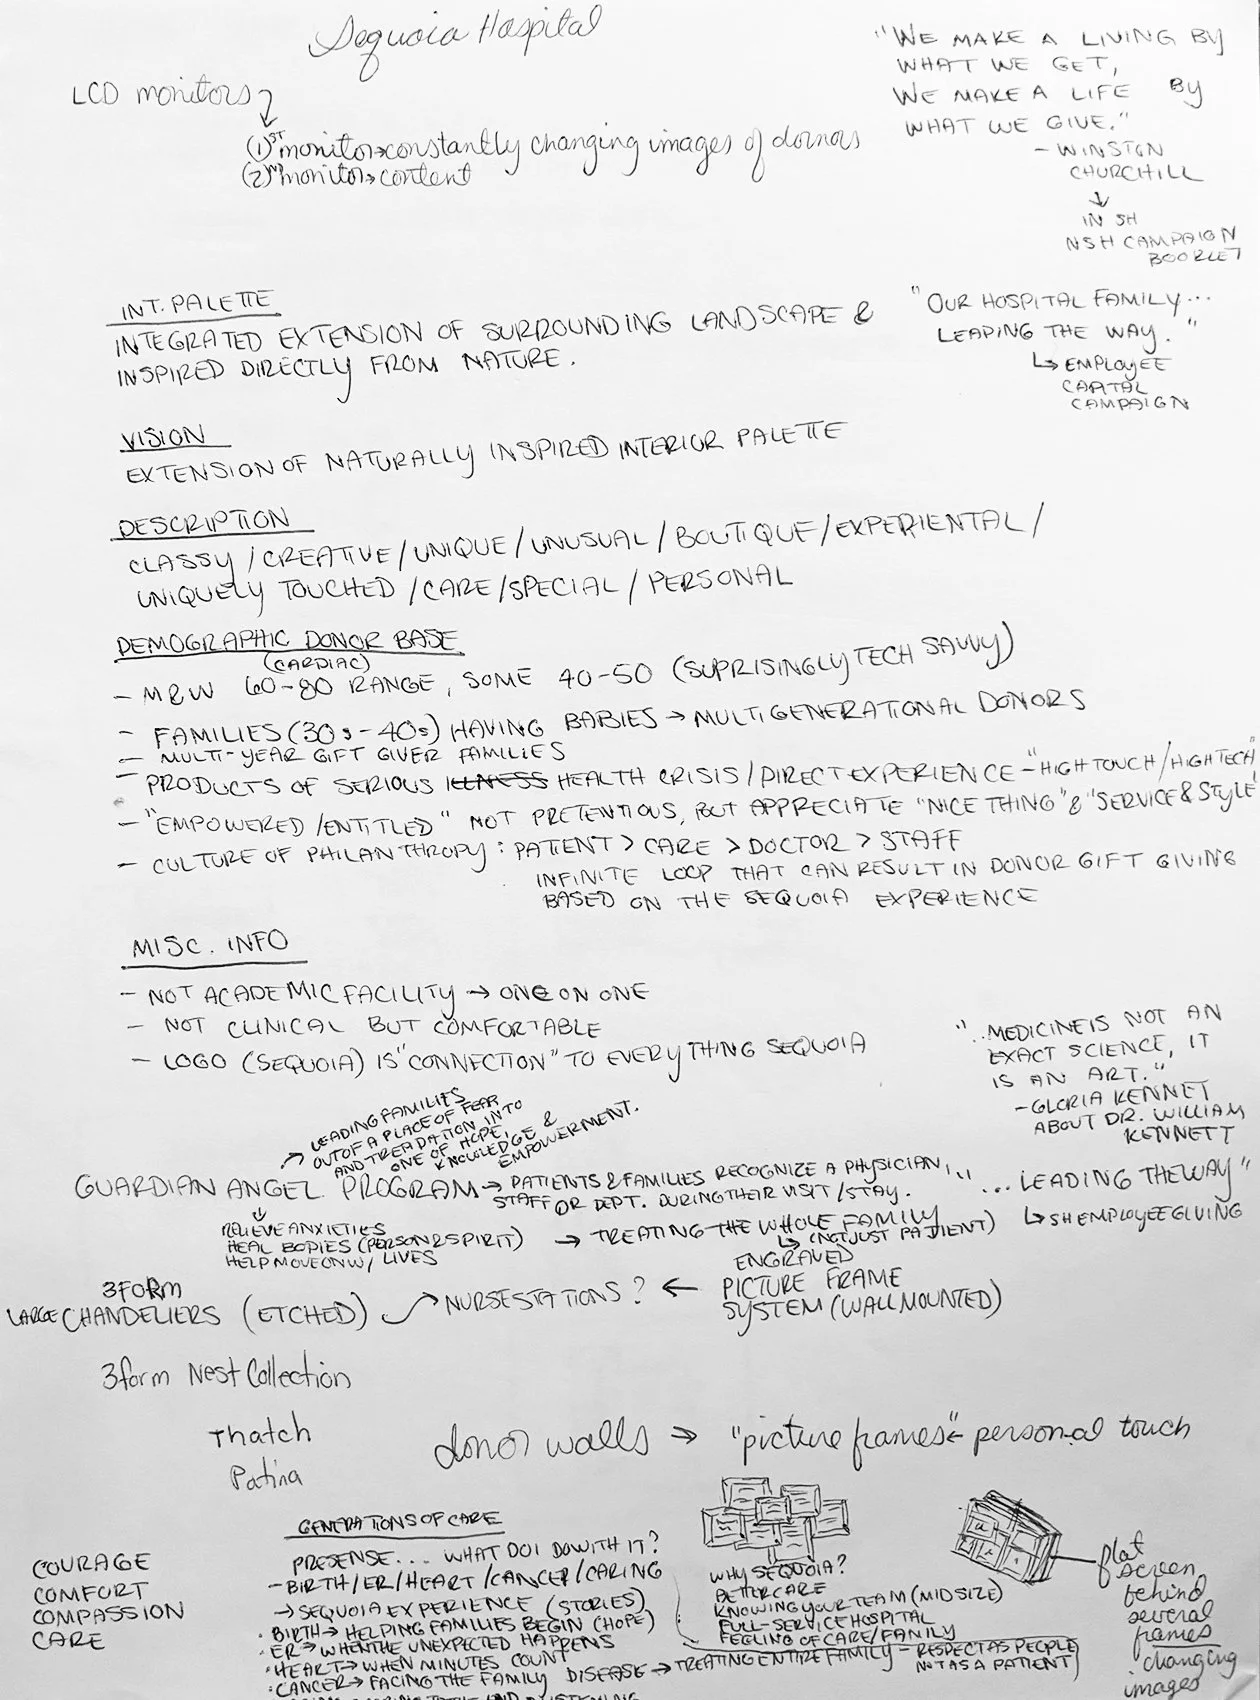 Sequoia Hospital
"WE MAKE A LIVING BY
WHAT WE GET,
WE MAKE A LIFE BY
WHAT WE GIVE."
- WINSTON
CHURCHILL
↓
IN SH
NSH CAMPAIGN
BOOKLET
LCD monitors
(1)ST monitor→constantly changing images of donors
(2)ND monitor→content
INT. PALETTE
INTEGRATED EXTENSION OF SURROUNDING LANDSCAPE &
INSPIRED DIRECTLY FROM NATURE.
"OUR HOSPITAL FAMILY...
LEADING THE WAY."
↳ EMPLOYEE
CAPITAL
CAMPAIGN
VISION
EXTENSION OF NATURALLY INSPIRED INTERIOR PALETTE
DESCRIPTION
CLASSY / CREATIVE / UNIQUE / UNUSUAL / BOUTIQUE / EXPERIENTAL /
UNIQUELY TOUCHED / CARE / SPECIAL / PERSONAL
DEMOGRAPHIC DONOR BASE
(CARDIAC)
- M&W 60-80 RANGE, SOME 40-50 (SUPRISINGLY TECH SAVVY)
- FAMILIES (30s-40s) HAVING BABIES → MULTIGENERATIONAL DONORS
- MULTI-YEAR GIFT GIVER FAMILIES
- PRODUCTS OF SERIOUS ILLNESS HEALTH CRISIS / DIRECT EXPERIENCE - "HIGH TOUCH / HIGH TECH"
- "EMPOWERED / ENTITLED" NOT PRETENTIOUS, BUT APPRECIATE "NICE THING" & "SERVICE & STYLE"
- CULTURE OF PHILANTHROPY: PATIENT > CARE > DOCTOR > STAFF
INFINITE LOOP THAT CAN RESULT IN DONOR GIFT GIVING
BASED ON THE SEQUOIA EXPERIENCE
MISC. INFO
- NOT ACADEMIC FACILITY → ONE ON ONE
- NOT CLINICAL BUT COMFORTABLE
- LOGO (SEQUOIA) IS "CONNECTION" TO EVERYTHING SEQUOIA
"...MEDICINE IS NOT AN
EXACT SCIENCE, IT
IS AN ART."
- GLORIA KENNET
ABOUT DR. WILLIAM
KENNETT
LEADING FAMILIES
OUT OF A PLACE OF FEAR
AND TREPIDATION INTO
ONE OF HOPE,
KNOWLEDGE &
EMPOWERMENT.
GUARDIAN ANGEL PROGRAM → PATIENTS & FAMILIES RECOGNIZE A PHYSICIAN,
STAFF OR DEPT. DURING THEIR VISIT / STAY.
"... LEADING THE WAY"
↳ SH EMPLOYEE GIVING
RELIEVE ANXIETIES
HEAL BODIES (PERSON & SPIRIT)
HELP MOVE ON W/ LIVES
→ TREATING THE WHOLE FAMILY
↳ (NOT JUST PATIENT)
3FORM
LARGE CHANDELIERS (ETCHED)
NURSE STATIONS? ←
ENGRAVED
PICTURE FRAME
SYSTEM (WALL MOUNTED)
3form Nest Collection
Thatch
Patina
donor walls → "picture frames" ← personal touch
COURAGE
COMFORT
COMPASSION
CARE
GENERATIONS OF CARE
PRESENSE.... WHAT DO I DO WITH IT?
- BIRTH / ER / HEART / CANCER / CARING
→ SEQUOIA EXPERIENCE (STORIES)
· BIRTH → HELPING FAMILIES BEGIN (HOPE)
· ER → WHEN THE UNEXPECTED HAPPENS
· HEART → WHEN MINUTES COUNT
· CANCER → FACING THE FAMILY DISEASE → TREATING ENTIRE FAMILY - RESPECT AS PEOPLE
NOT AS A PATIENT
WHY SEQUOIA?
BETTER CARE
KNOWING YOUR TEAM (MID SIZE)
FULL-SERVICE HOSPITAL
FEELING OF CARE/FAMILY
flat
screen
behind
several
frames
changing
images